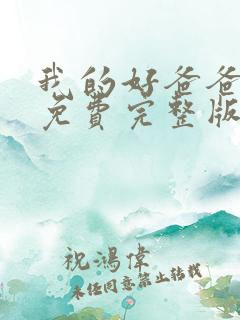 我的好爸爸
免费完整版
祝鸿偉
未任同意禁止转载